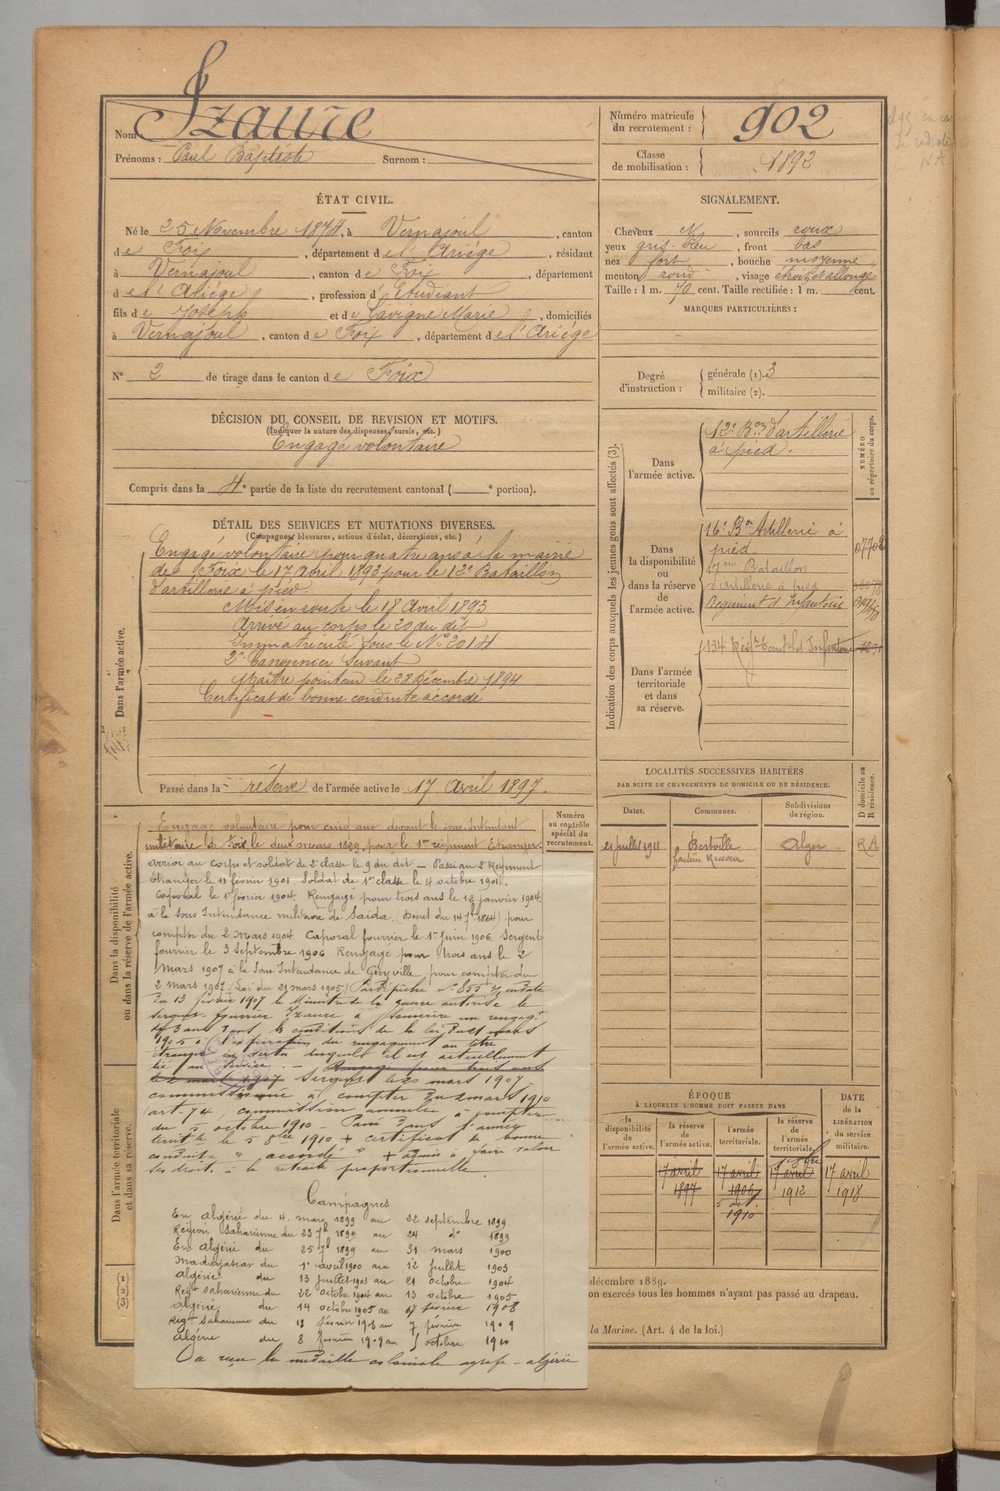 Nom : Izaure
Prénoms : Paul Baptiste Surnom :
Numéro matricule du recrutement : 902
Classe de mobilisation : 1892
ÉTAT CIVIL.
Né le 25 Novembre 1874, à Vernajoul, canton
de Foix, département de l'Ariége, résidant
à Vernajoul, canton de Foix, département
de l'Ariége, profession d'Etudiant
fils de Joseph et de Lavigne Marie, domiciliés
à Vernajoul, canton de Foix, département de l'Ariége
N° 2 de tirage dans le canton de Foix
SIGNALEMENT.
Cheveux N, sourcils roux
yeux gris-bleu, front bas
nez fort, bouche moyenne,
menton rond, visage étroit et allongé
Taille : 1 m. 70 cent. Taille rectifiée : 1 m. cent.
MARQUES PARTICULIÈRES :
Degré d'instruction : générale (1). 3
militaire (2).
DÉCISION DU CONSEIL DE REVISION ET MOTIFS.
(Indiquer la nature des dispenses, sursis, etc.)
Engagé volontaire
Compris dans la 4e partie de la liste du recrutement cantonal ( e portion).
DÉTAIL DES SERVICES ET MUTATIONS DIVERSES.
(Campagnes, blessures, actions d'éclat, décorations, etc.)
Dans l'armée active.
Engagé volontaire pour quatre ans à la mairie
de Foix le 17 avril 1893 pour le 12e Bataillon
d'artillerie à pied.
Mis en route le 18 Avril 1893
Arrivé au corps le 20 du dit
Immatriculé sous le N° 2014
2e Canonnier servant
Maître pointeur le 22 décembre 1894
Certificat de bonne conduite accordé
Passé dans la réserve de l'armée active le 17 avril 1897.
Indication des corps auxquels les jeunes gens sont affectés (3).
NUMÉRO au répertoire du corps.
Dans l'armée active.
12e Bon d'artillerie
à pied.
Dans la disponibilité ou dans la réserve de l'armée active.
16e Bon Artillerie à
pied.
17me Bataillon
d'artillerie à pied
Régiment d'Infanterie
Dans l'armée territoriale et dans sa réserve.
134 Régt Territ d'Infanterie
LOCALITÉS SUCCESSIVES HABITÉES
PAR SUITE DE CHANGEMENTS DE DOMICILE OU DE RÉSIDENCE.
Dates. Communes. Subdivisions de région. D domicile ou R résidence.
21 juillet 1911 Alger RA
Numéro au contrôle spécial du recrutement.
Dans la disponibilité ou dans la réserve de l'armée active.
Engagé volontaire pour cinq ans devant le sous Intendant
militaire de Foix le deux mars 1899 pour le 1er régiment Etranger.
arrivé au corps et soldat de 2e classe le 9 du dit – Passé au 2e Régiment
Etranger le 11 février 1901. Soldat de 1re classe le 4 octobre 1901.
Caporal le 1er février 1904. Rengagé pour trois ans le 12 janvier 1904
à la Sous Intendance militaire de Saïda. pour
compter du 2 mars 1904. Caporal fourrier le 1er Juin 1906. Sergent
fourrier le 3 septembre 1906 Rengagé pour trois ans le 2
Mars 1907 à la Sous-Intendance de Géryville pour compter du
2 mars 1907 (Loi du 21 mars 1905) en date
du 13 février 1907 le Ministre de la guerre autorise le
sergent fourrier Izaure à souscrire un rengagt
de 3 ans dans les conditions de la loi du 21 mars
1905 à l'expiration du rengagement au titre
étranger en vertu duquel il est actuellement
lié au service. – Rengagé pour trois ans
le 2 mars 1907 Sergent le 20 mars 1907
commissionné à compter du 2 mars 1910
art. 74 commission annulée à compter
du 5 octobre 1910 –
territle le 5 8bre 1910 + certificat de bonne
conduite "accordé" + admis à faire valoir
ses droits à la retraite proportionnelle
Campagnes
En Algérie du 4 mars 1899 au 22 septembre 1899
Région saharienne du 23 7b 1899 au 24 do 1899
En Algérie du 25 7b 1899 au 31 mars 1900
Madagascar du 1er avril 1900 au 12 juillet 1903
Algérie du 13 juillet 1903 au 21 octobre 1904
Régt saharienne du 22 octobre 1904 au 13 octobre 1905
Algérie du 14 octobre 1905 au 17 février 1908
Régt saharienne du 18 février 1908 au 7 février 1909
Algérie du 8 février 1909 au 5 octobre 1910
Oa reçu la médaille coloniale agrafe – algérie
Dans l'armée territoriale et dans sa réserve.
ÉPOQUE
À LAQUELLE L'HOMME DOIT PASSER DANS
DATE de la LIBÉRATION du service militaire.
la disponibilité de l'armée active.
la réserve de l'armée active.
l'armée territoriale.
la réserve de l'armée territoriale.
17 avril 1897
17 avril 1906
5 oct. 1910
17 avril 1912
17 avril 1918
(1)
(2)
(3)
décembre 1889.
on exercés tous les hommes n'ayant pas passé au drapeau.
la Marine. (Art. 4 de la loi.)